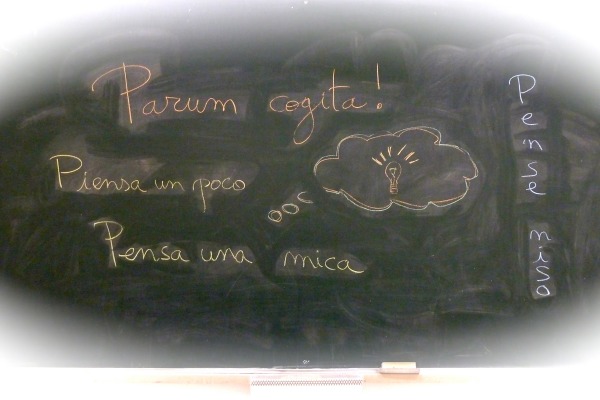 Parum cogita!
Piensa un poco
Pensa una mica
Pense miso